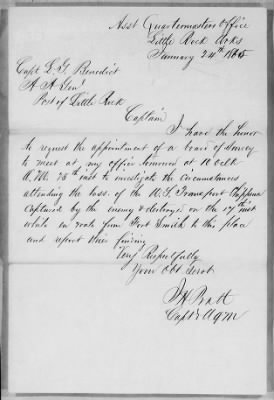 Asst Quartermasters Office
Little Rock Arks
January 24th 1865
Capt. L. G. Benedict
A A Genl
Post of Little Rock
Captain
I have the honor
to request the appointment of a board of survey
to meet at my office tomorrow at 10 oclk
A.M. 25th inst to investigate the circumstances
attending the loss of the U.S. Transport
captured by the enemy & destroyed on the 17th inst
while en route from Fort Smith to this place
and report their finding
Very Respectfully
Your Obt Servt
Pratt
Capt & AQM